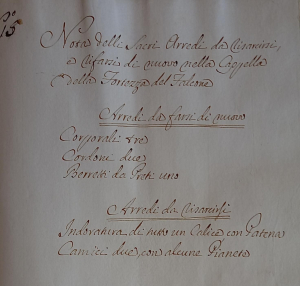 Nota delli Sacri Arredi da Risarcirsi,
e Rifarsi di nuovo nella Cappella
della Fortezza del Falcone
Arredi da farsi di nuovo
Corporali tre
Cordoni due
Berretti da Preti uno
Arredi da Risarcirsi
Indoratura di tutto un Calice con Patena
Camici due, con alcune Pianete